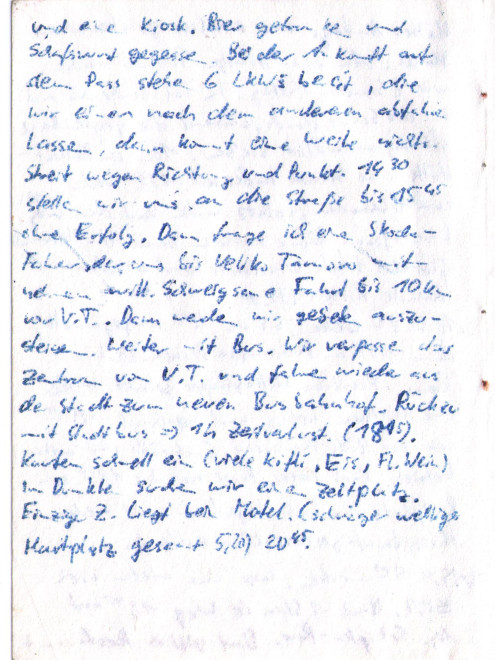 und eine Kiosk. Bier getrunken und
Schafswurst gegessen. Bei der Ankunft auf
dem Pass stehen 6 LKWs bereit, die
wir einen nach dem anderen abfahren
lassen, dann kommt eine weile nichts.
Streit wegen Richtung und Punkt. 14³⁰
stellen wir uns an die Straße bis 15⁴⁵
ohne Erfolg. Dann frage ich eine Skoda-
Fahrer der uns bis Veliko Tarnovo mit-
nehmen will. Schweigsame Fahrt bis 10 km
vor V.T.. Dann werden wir gebeten auszu-
steigen. Weiter mit Bus. Wir verpassen das
Zentrum von V.T. und fahren wieder aus
der Stadt zum neuen Busbahnhof. Rückweg
mit Stadtbus => 1h Zeitverlust. (18¹⁵).
Kaufen schnell ein (viele Kifli, Eis, Fl. Wein)
Im Dunkeln suchen wir einen Zeltplatz.
Einzige Z. liegt bei Motel. (schräger welliger
Hartplatz gesamt 5,20) 20⁴⁵.